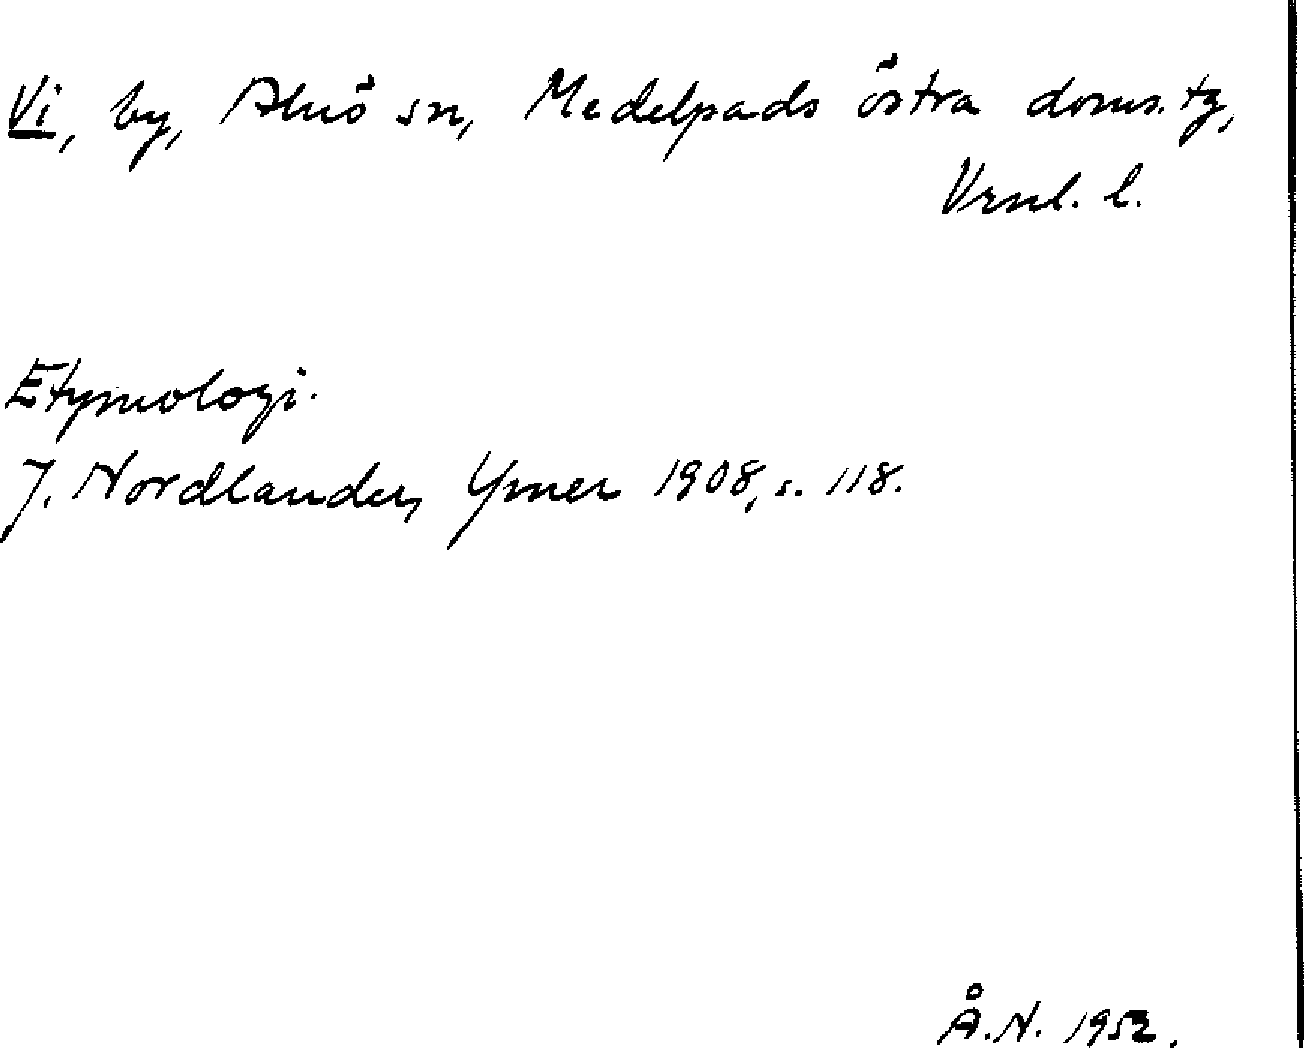 Vi, by, Alnö sn, Medelpads östra doms. tg,
Vrnl. l.
Etymologi.
J. Nordlander, Ymer 1908, s. 118.
Å.N. 1952.